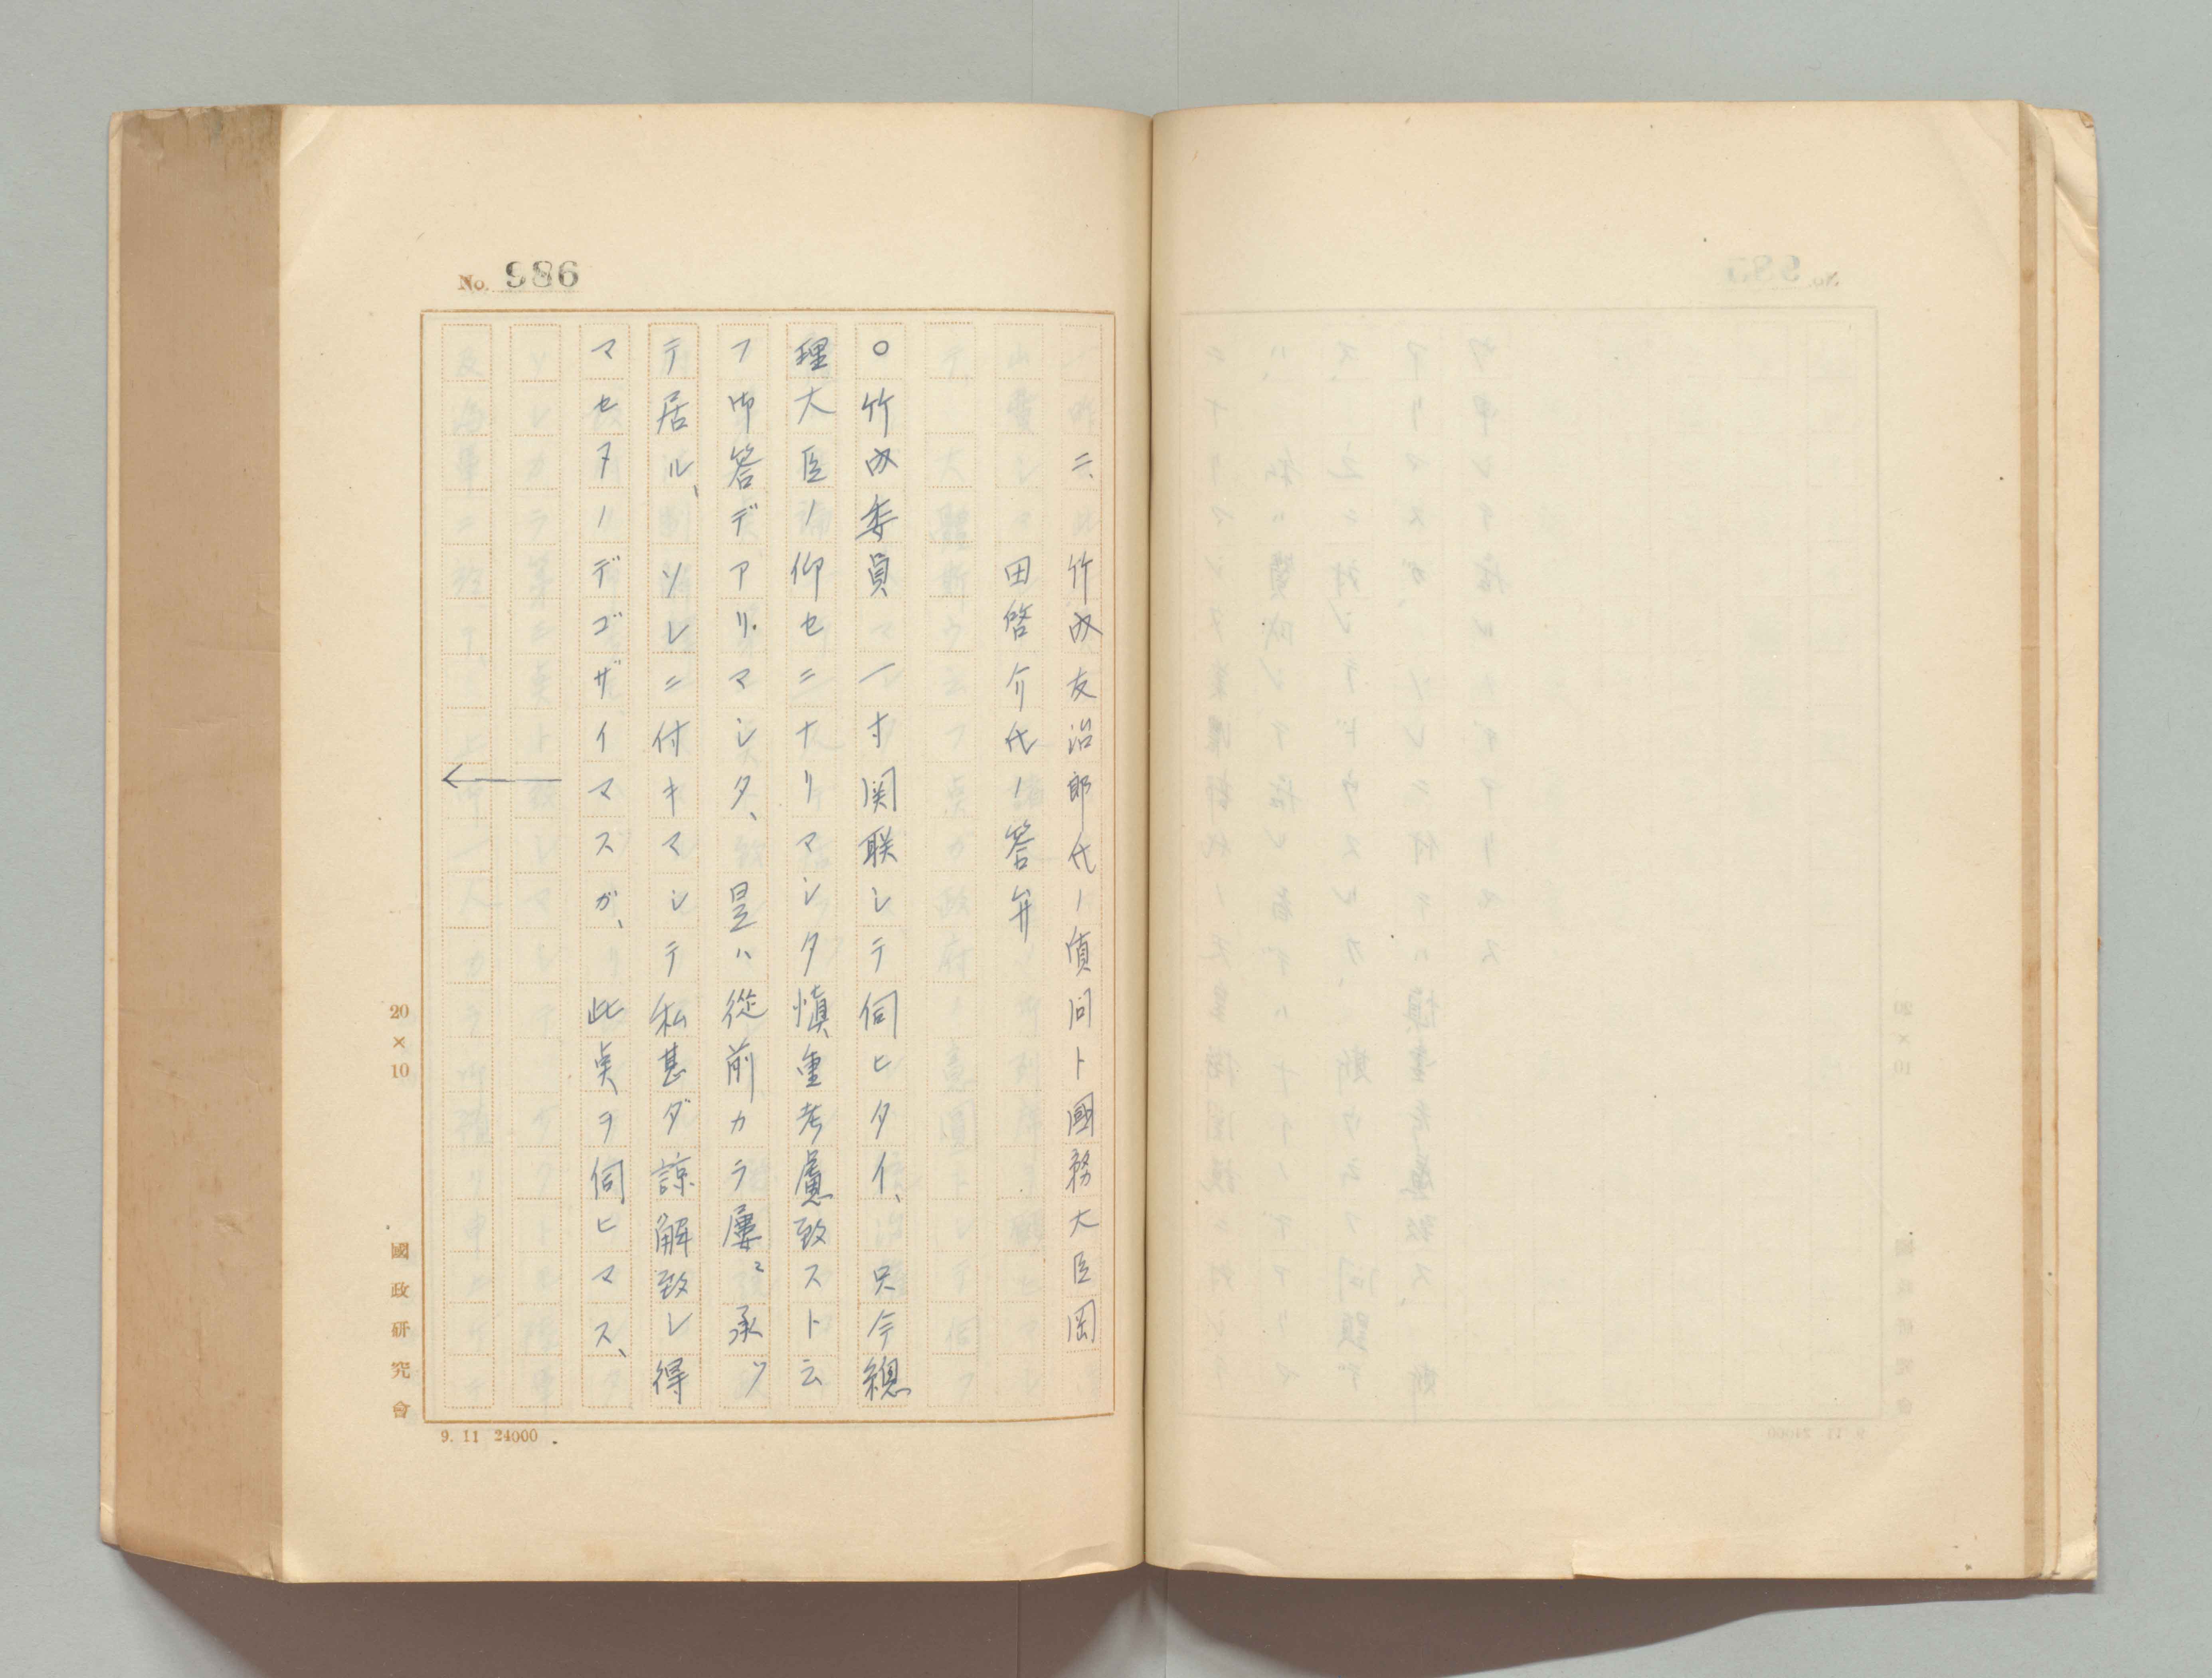 No. 986
二、竹内友治郎氏ノ質問ト國務大臣岡
田啓介氏ノ答弁
○竹内委員 一寸関联シテ伺ヒタイ、只今總
理大臣ノ仰セニナリマシタ愼重考慮致ストト云
フ御答デアリマシタ、是ハ從前カラ屢〻承ツ
テ居ル、ソレニ付キマシテ私甚ダ諒解致シ得
マセヌノデゴザイマスガ、此点ヲ伺ヒマス、
20×10
國政研究會
9. 11 24000